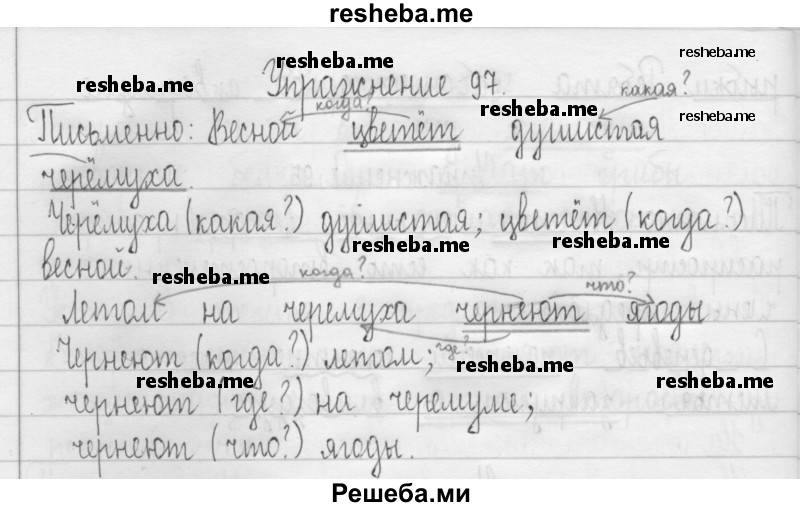 resheba.me
resheba.me resheba.me
Упражнение 97.
resheba.me
когда? resheba.me какая?
Письменно: Весной цветёт душистая
resheba.me
черёмуха.
Черёмуха (какая?) душистая; цветёт (когда?)
resheba.me resheba.me
весной. resheba.me
когда? что?
Летом на черемуха чернеют ягоды
Чернеют (когда?) летом; где? resheba.me
resheba.me resheba.me
чернеют (где?) на черемуме;
чернеют (что?) ягоды.
Решеба.ми